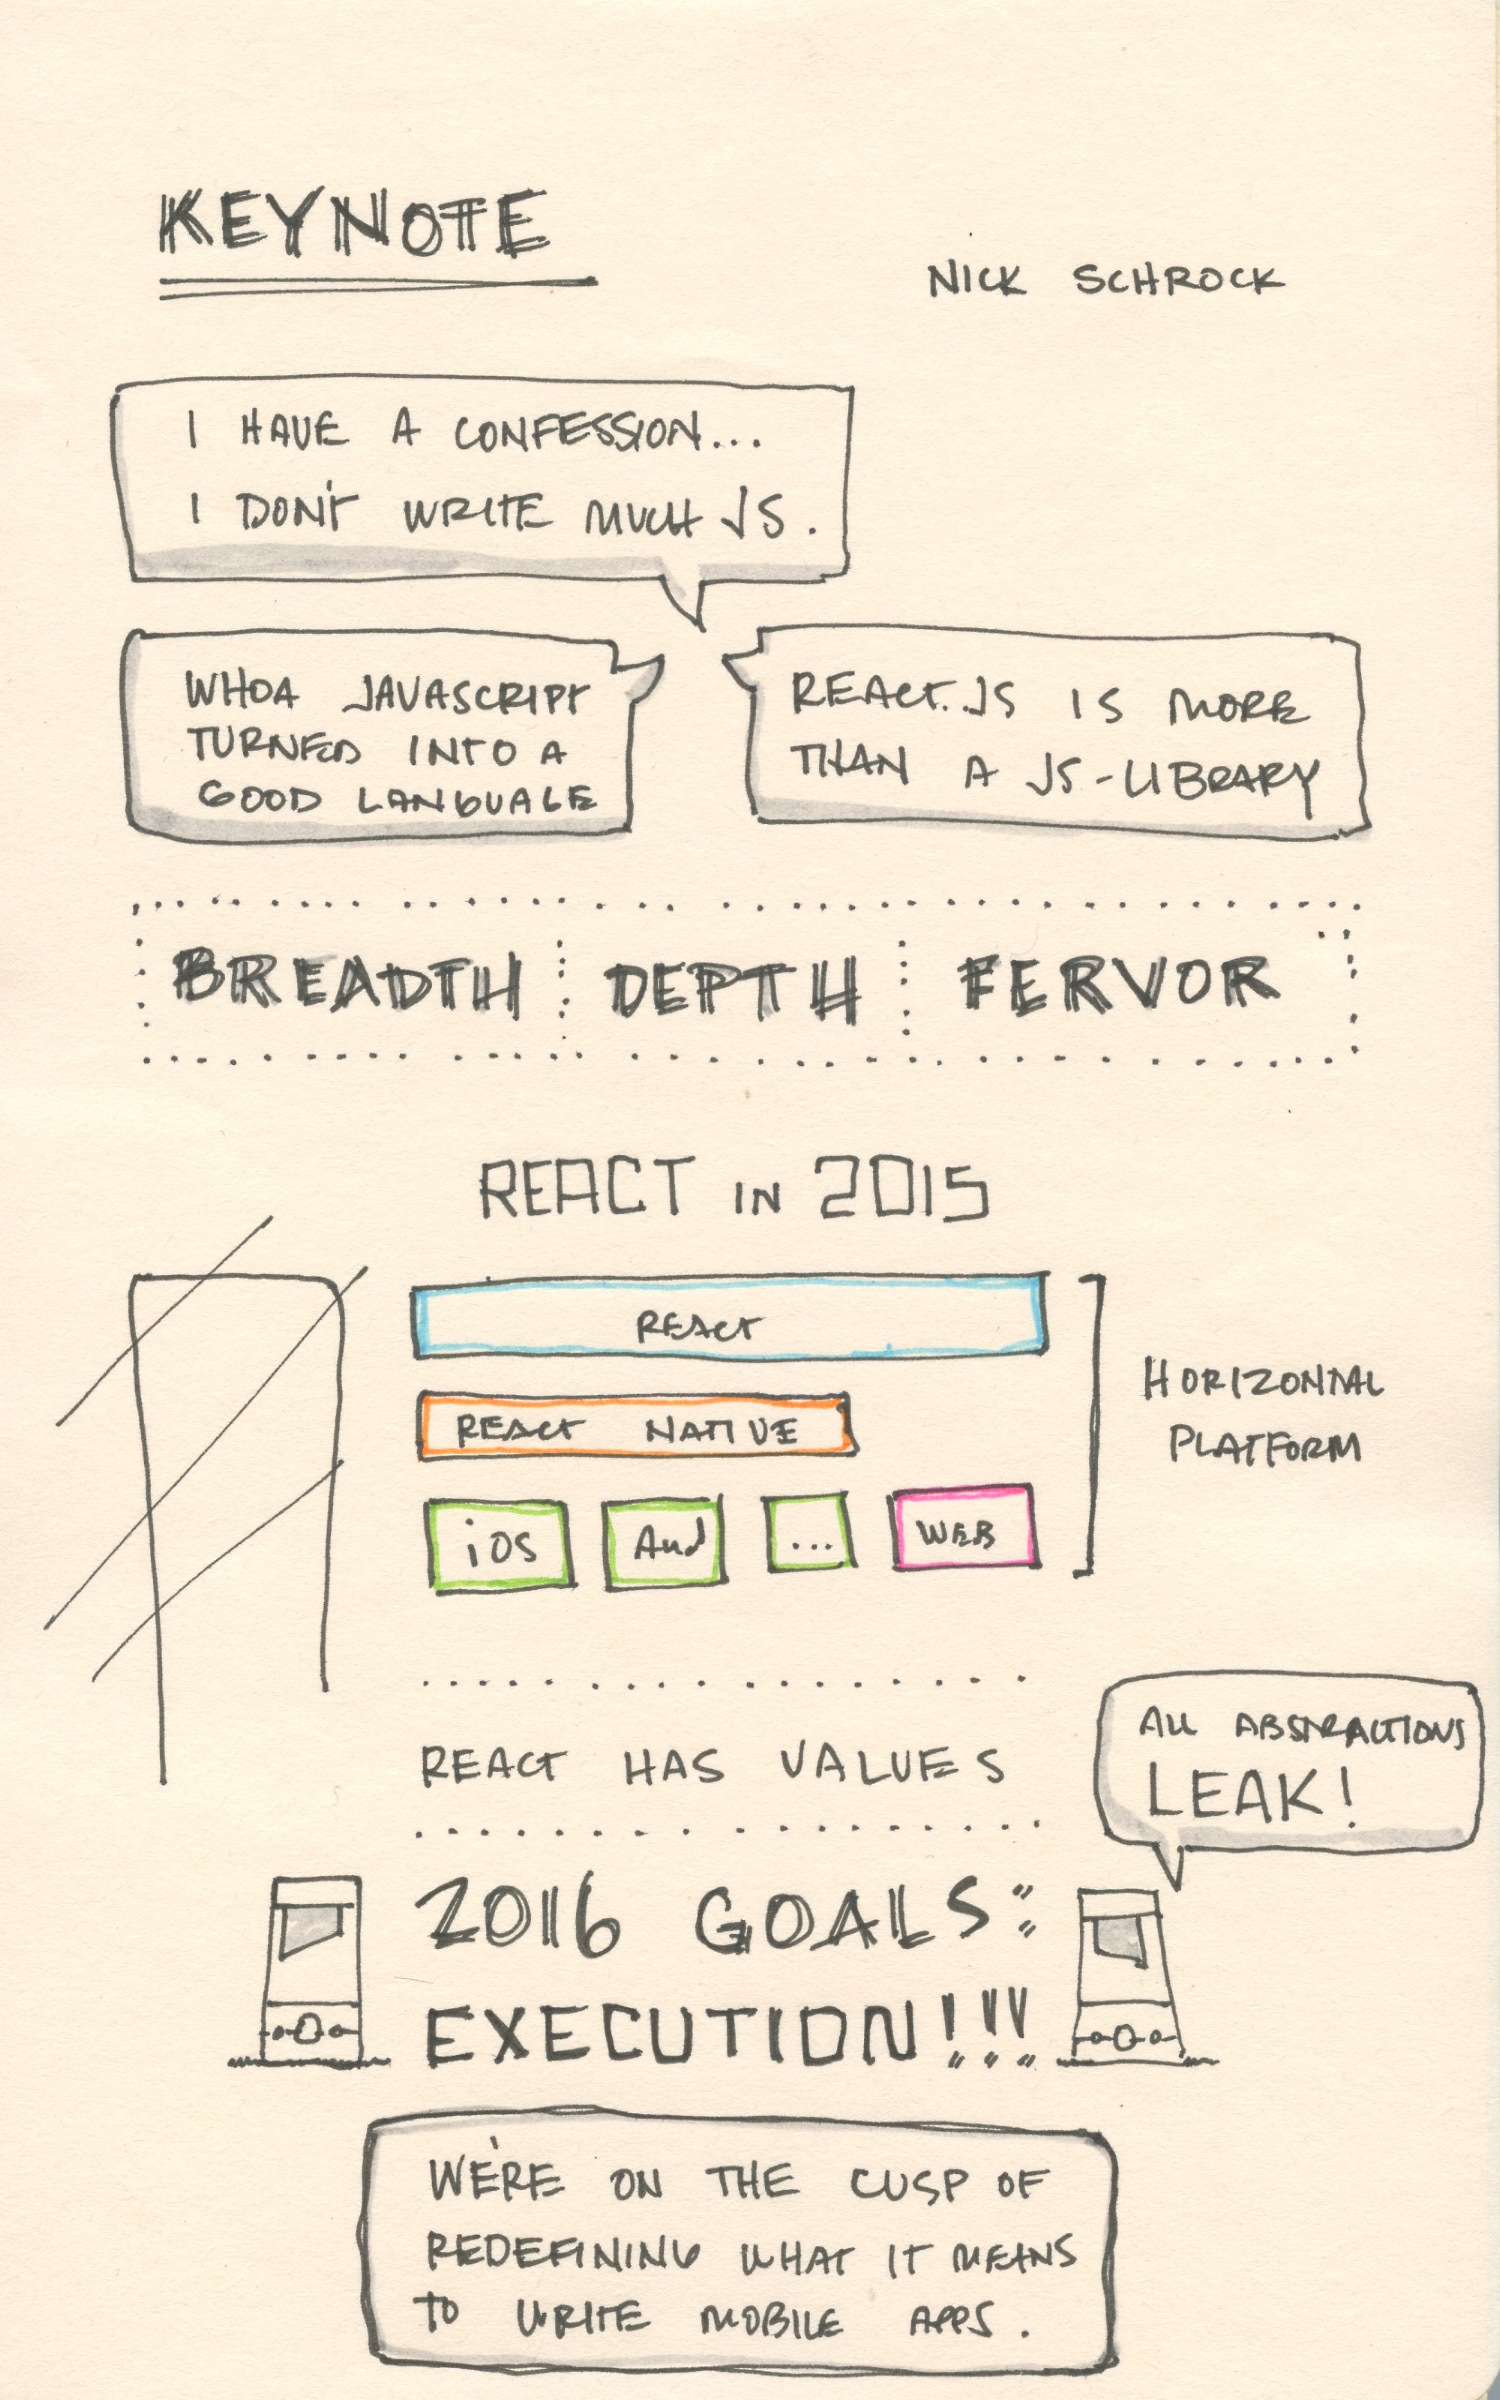 KEYNOTE
NICK SCHROCK
I HAVE A CONFESSION...
I DON'T WRITE MUCH JS.
WHOA JAVASCRIPT
TURNED INTO A
GOOD LANGUAGE
REACT.JS IS MORE
THAN A JS-LIBRARY
BREADTH DEPTH FERVOR
REACT IN 2015
REACT
REACT NATIVE
iOS And ... WEB
HORIZONTAL
PLATFORM
REACT HAS VALUES
ALL ABSTRACTIONS
LEAK!
2016 GOALS:
EXECUTION!!!
WE'RE ON THE CUSP OF
REDEFINING WHAT IT MEANS
TO WRITE MOBILE APPS.